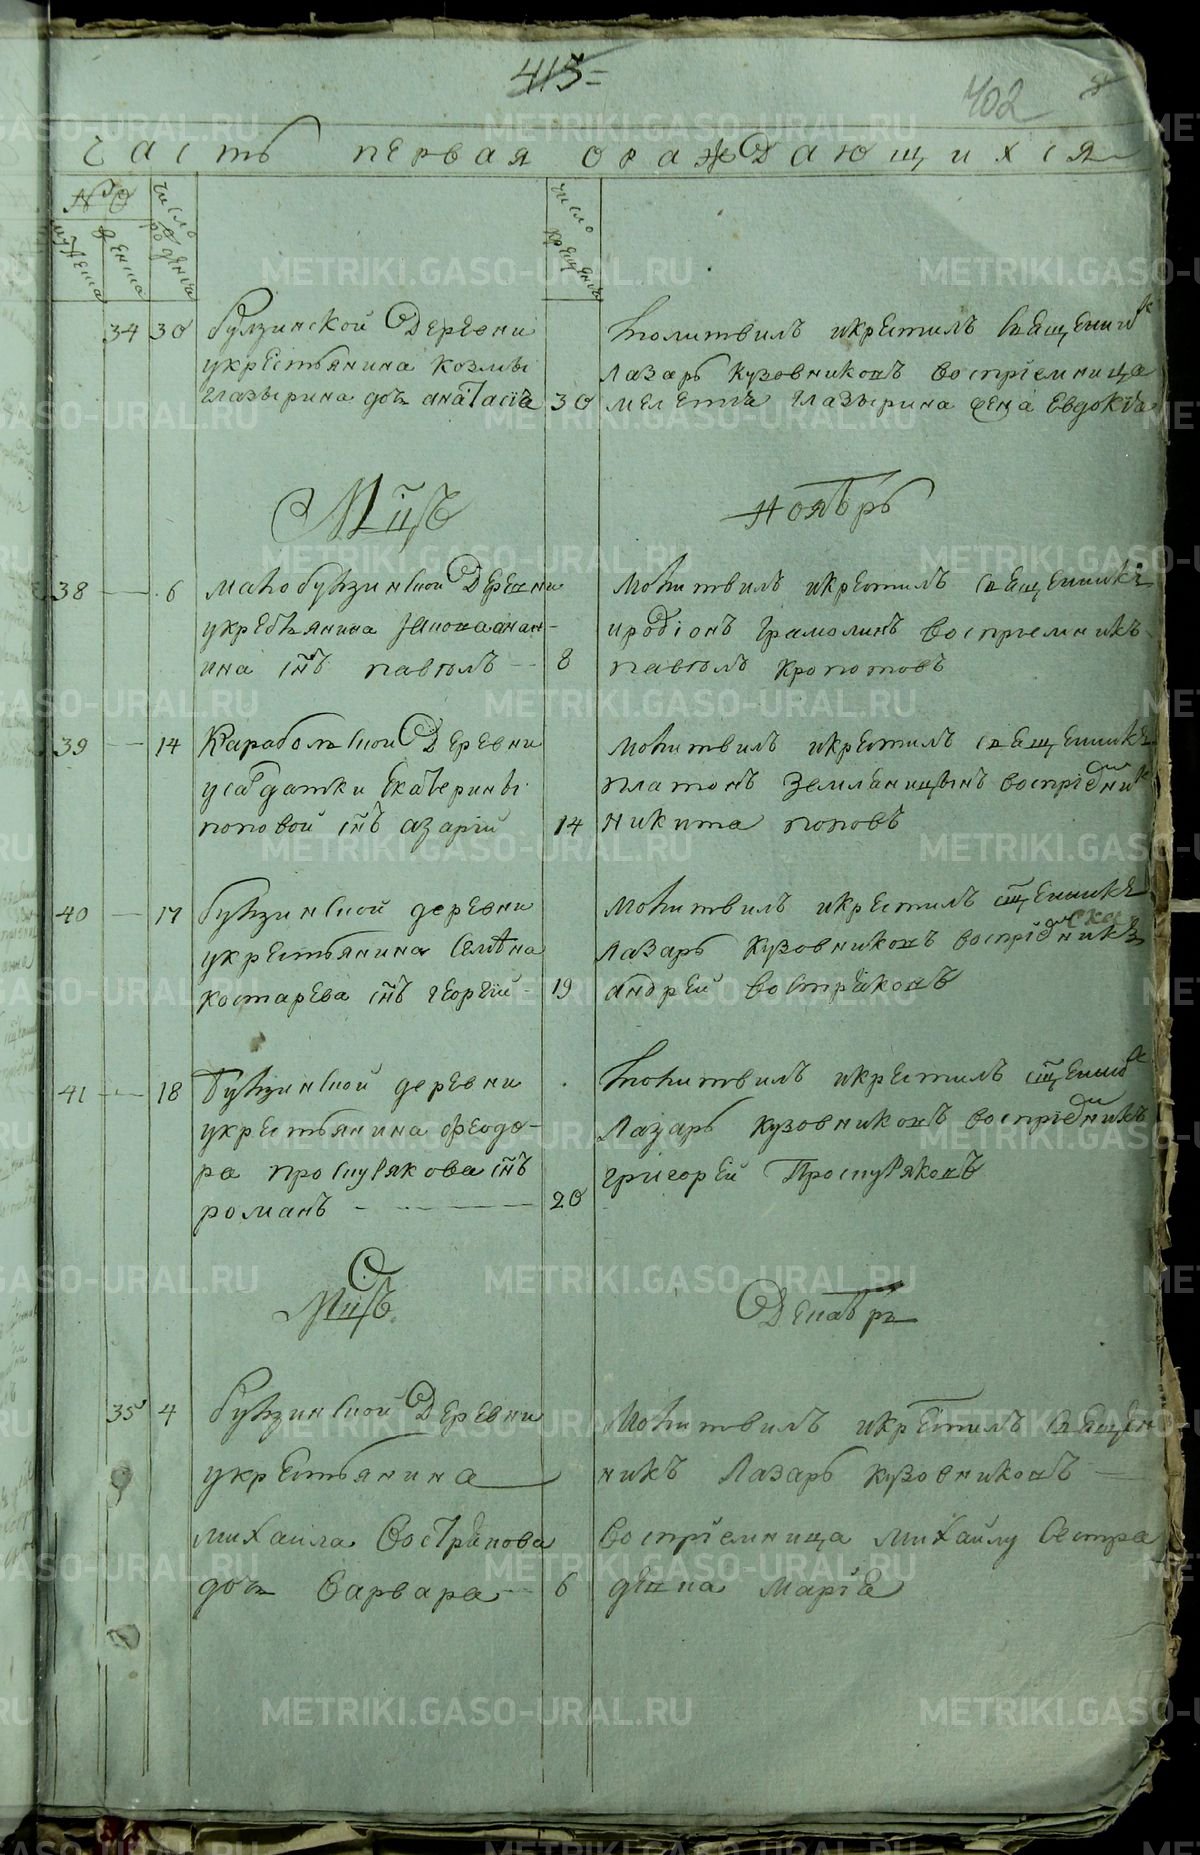 415
402
часть первая ораждающихся
№
мужеска
женска
число рожденія
число крещенія
34 30 булзинской деревни
укрестьянина козмы
глазырина доч анатасіа 30
молитвилъ икрестилъ священик
лазарь кузовниковъ воспріемница
мелетиа глазырина жена евдокіа
Мцъ Ноябрь
38 6 малобулзинской деревни
укрестьянина
ина снъ павелъ 8
молитвилъ икрестилъ священикъ
иродіонъ грамолинъ воспріемникъ
павелъ кропотовъ
39 14 карабольской деревни
усалдатки екатерины
поповой снъ азарій 14
молитвилъ икрестилъ священикъ
платонъ земляницынъ воспріемник
никита поповъ
40 17 булзинской деревни
укрестьянина семена
костарева снъ георгій 19
молитвилъ икрестилъ сщеникъ
лазарь кузовниковъ воспріемникъ
андрей востряковъ
41 18 булзинской деревни
укрестьянина феодо-
ра проскурякова снъ
романъ 20
молитвилъ икрестилъ сщеник
лазарь кузовниковъ воспріемникъ
григорей проскуряковъ
Мцъ Декабрь
35 4 булзинской деревни
укрестьянина
михаила вострякова
доч варвара 6
молитвилъ икрестилъ священ
никъ лазарь кузовниковъ
воспріемница михайлу сестра
девка маріа
METRIKI.GASO-URAL.RU